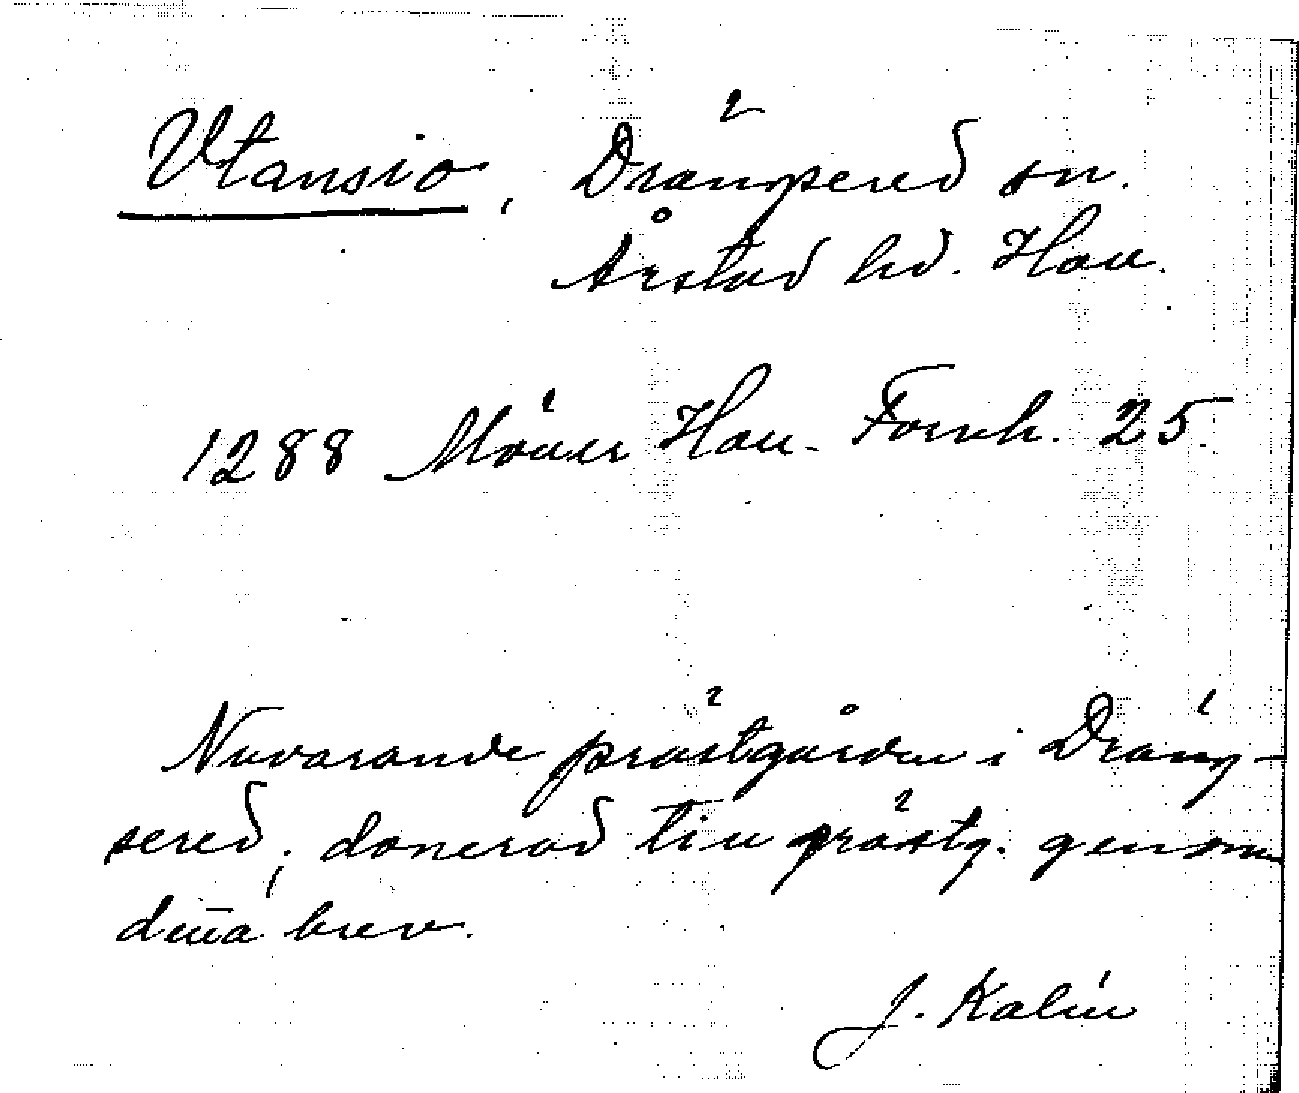 Utansio, Drängsered sn.
Årstad hd. Hall.
1288 Möller Hall. Fornh. 25.
Nuvarande prästgården i Dräng-
sered, donerad till prästg. genom
den̄a brev.
J. Kalén